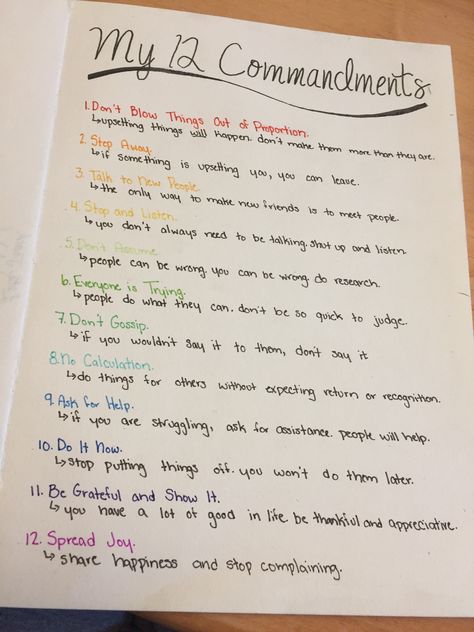 My 12 Commandments
1. Don't Blow Things Out of Proportion.
↳upsetting things will happen. don't make them more than they are.
2. Step Away.
↳if something is upsetting you, you can leave.
3. Talk to New People.
↳the only way to make new friends is to meet people.
4. Stop and Listen.
↳you don't always need to be talking. shut up and listen.
5. Don't Assume.
↳people can be wrong. you can be wrong. do research.
6. Everyone is Trying.
↳people do what they can. don't be so quick to judge.
7. Don't Gossip.
↳if you wouldn't say it to them, don't say it
8. No Calculation.
↳do things for others without expecting return or recognition.
9. Ask for Help.
↳if you are struggling, ask for assistance. people will help.
10. Do It Now.
↳stop putting things off. you won't do them later.
11. Be Grateful and Show It.
↳you have a lot of good in life. be thankful and appreciative.
12. Spread Joy.
↳share happiness and stop complaining.